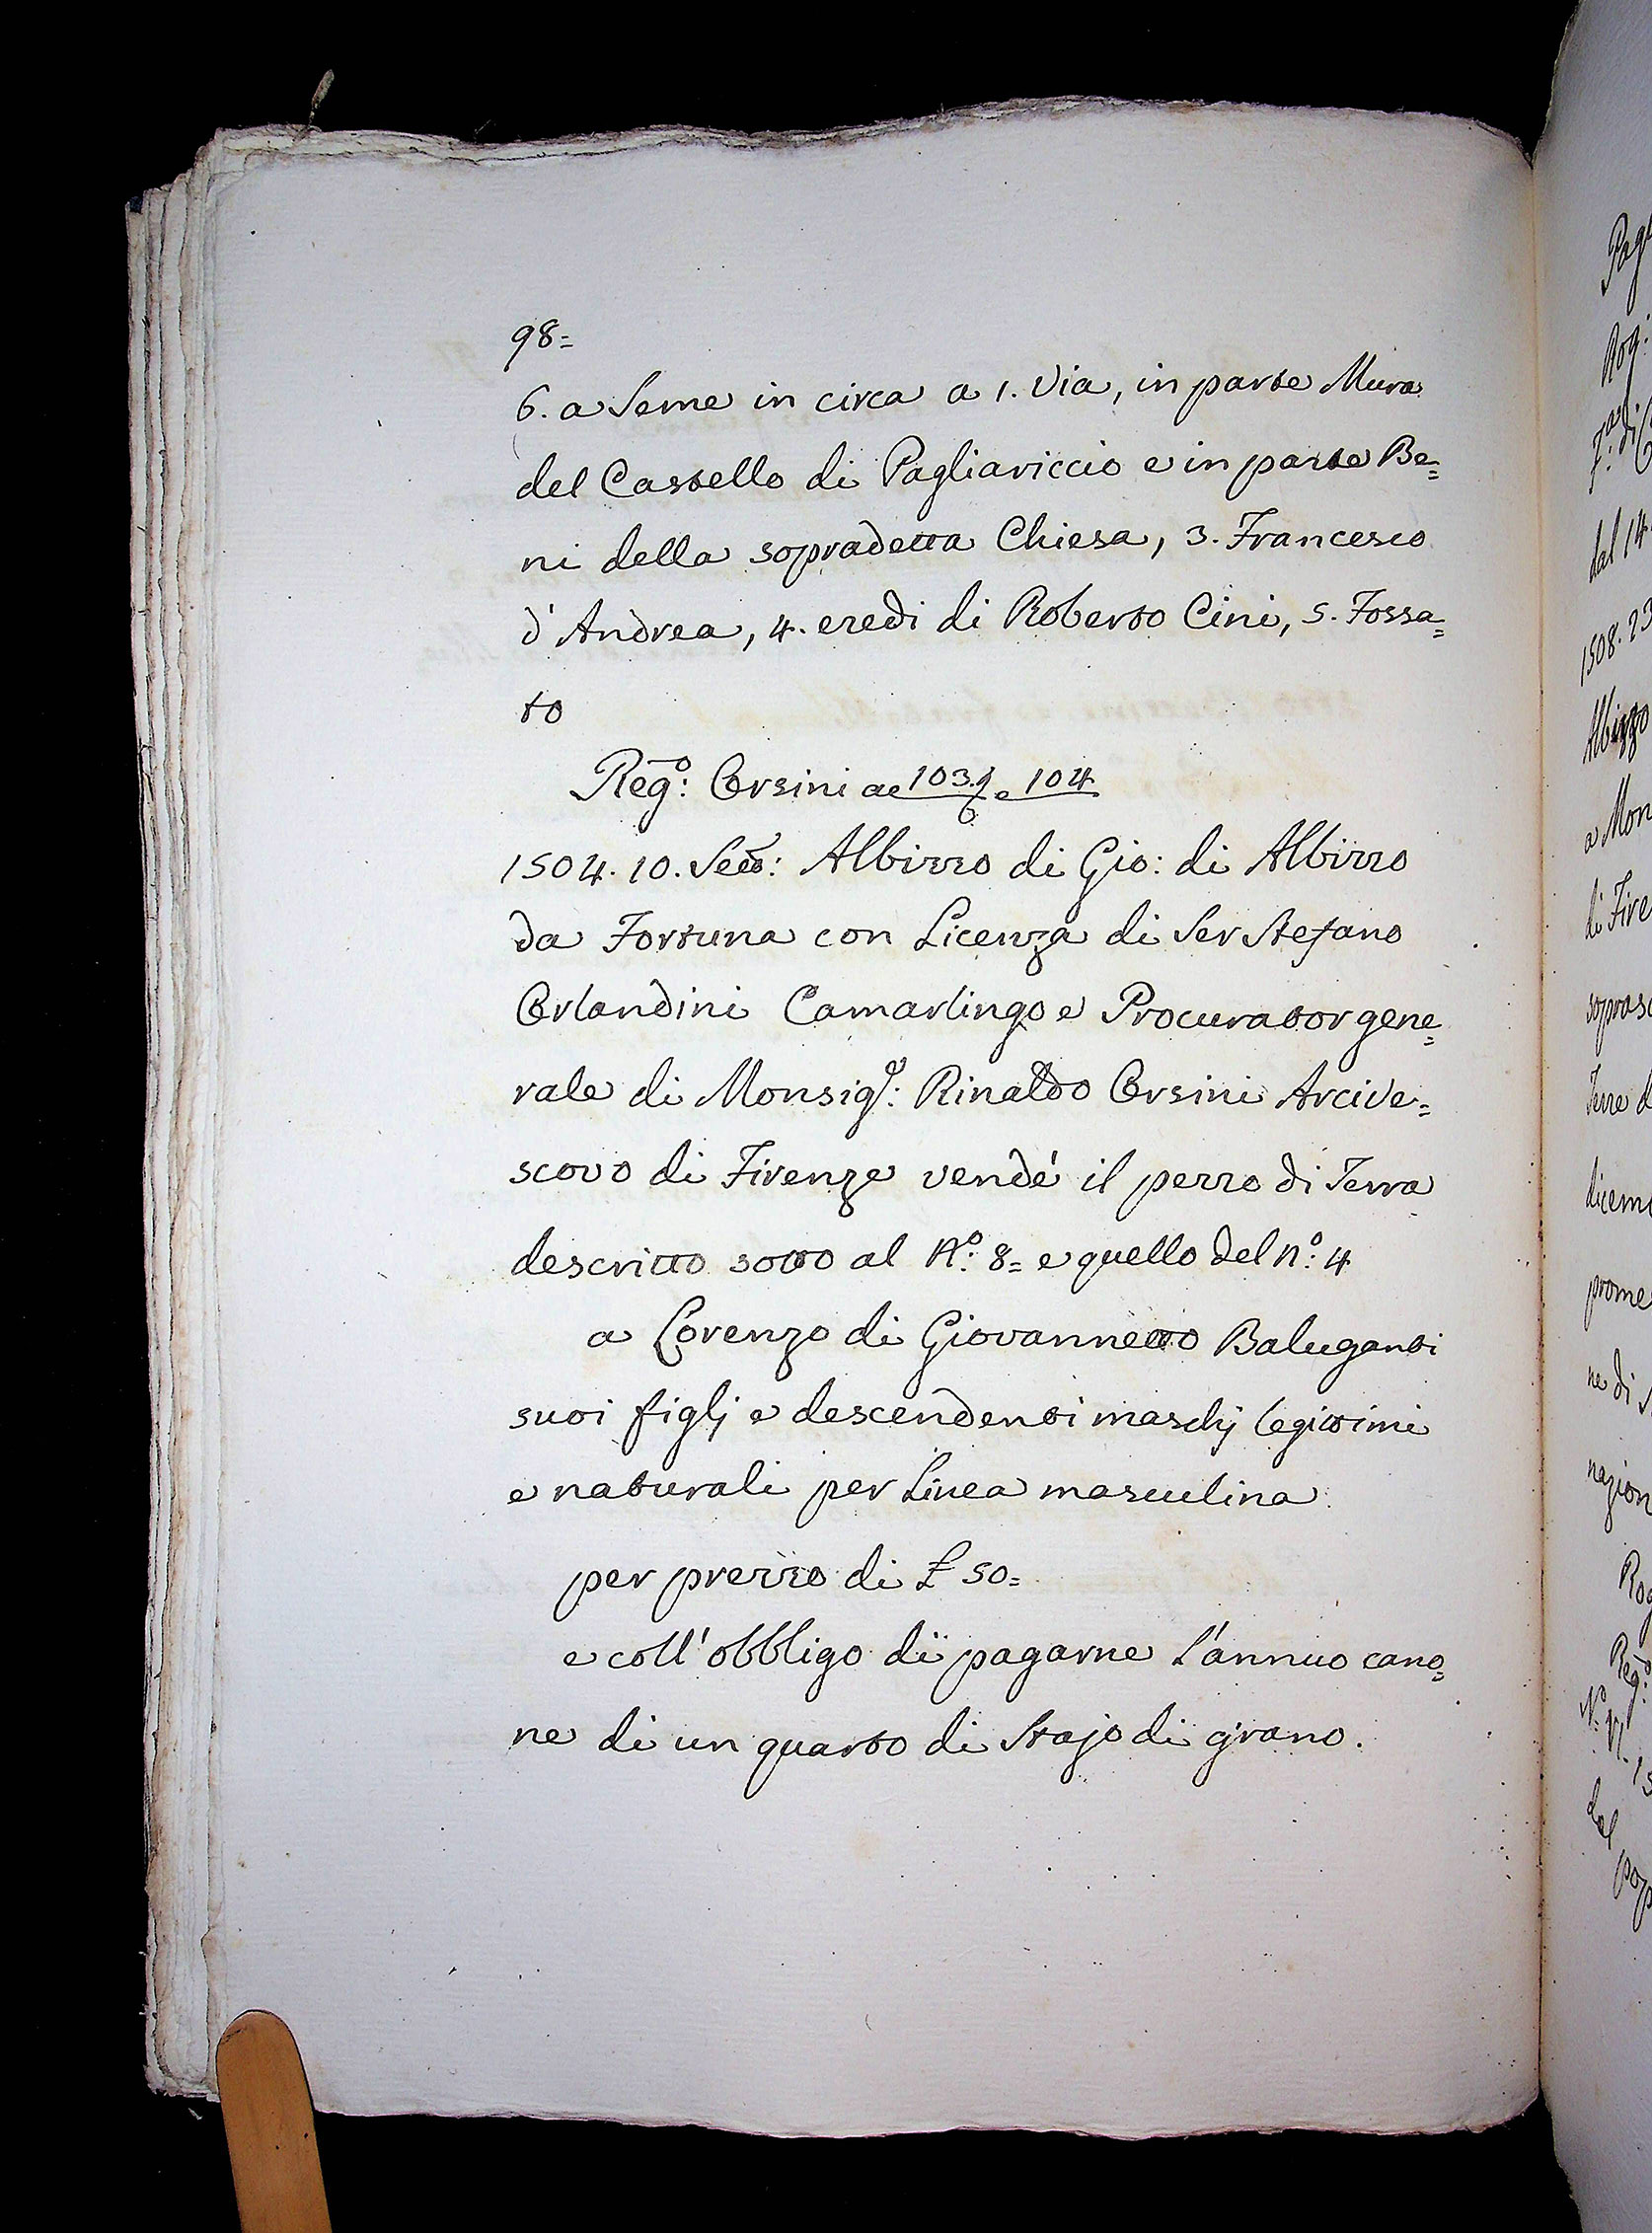 98=
6. a Seme in circa a 1. Via, in parte Mura
del Castello di Pagliariccio e in parte Be=
ni della sopradetta Chiesa, 3. Francesco
d'Andrea, 4. eredi di Roberto Cini, 5. Fossa=
to
Reg.º: Orsini a 103. e 104
1504. 10. Albizzo di Gio: di Albizzo
da Fortuna con Licenza di Ser Stefano
Orlandini Camarlingo e Procurator gene=
rale di Monsig.r: Rinaldo Orsini Arcive=
scovo di Firenze vendé il pezzo di Terra
descritto sotto al N.º: 8= e quello del n.º: 4
a Lorenzo di Giovannetto Baluganti
suoi figlj e descendenti maschj legittimi
e naturali per Linea masculina
per prezzo di £ 50=
e coll'obbligo di pagarne l'annuo cano=
ne di un quarto di Stajo di grano.
Rog:
dal 14
1508. 23
Albizzo
a Mon
di Fire
soprasc
Terre d
dicem
prome
ne di S
nazion
Rog
Reg.º:
del
pop